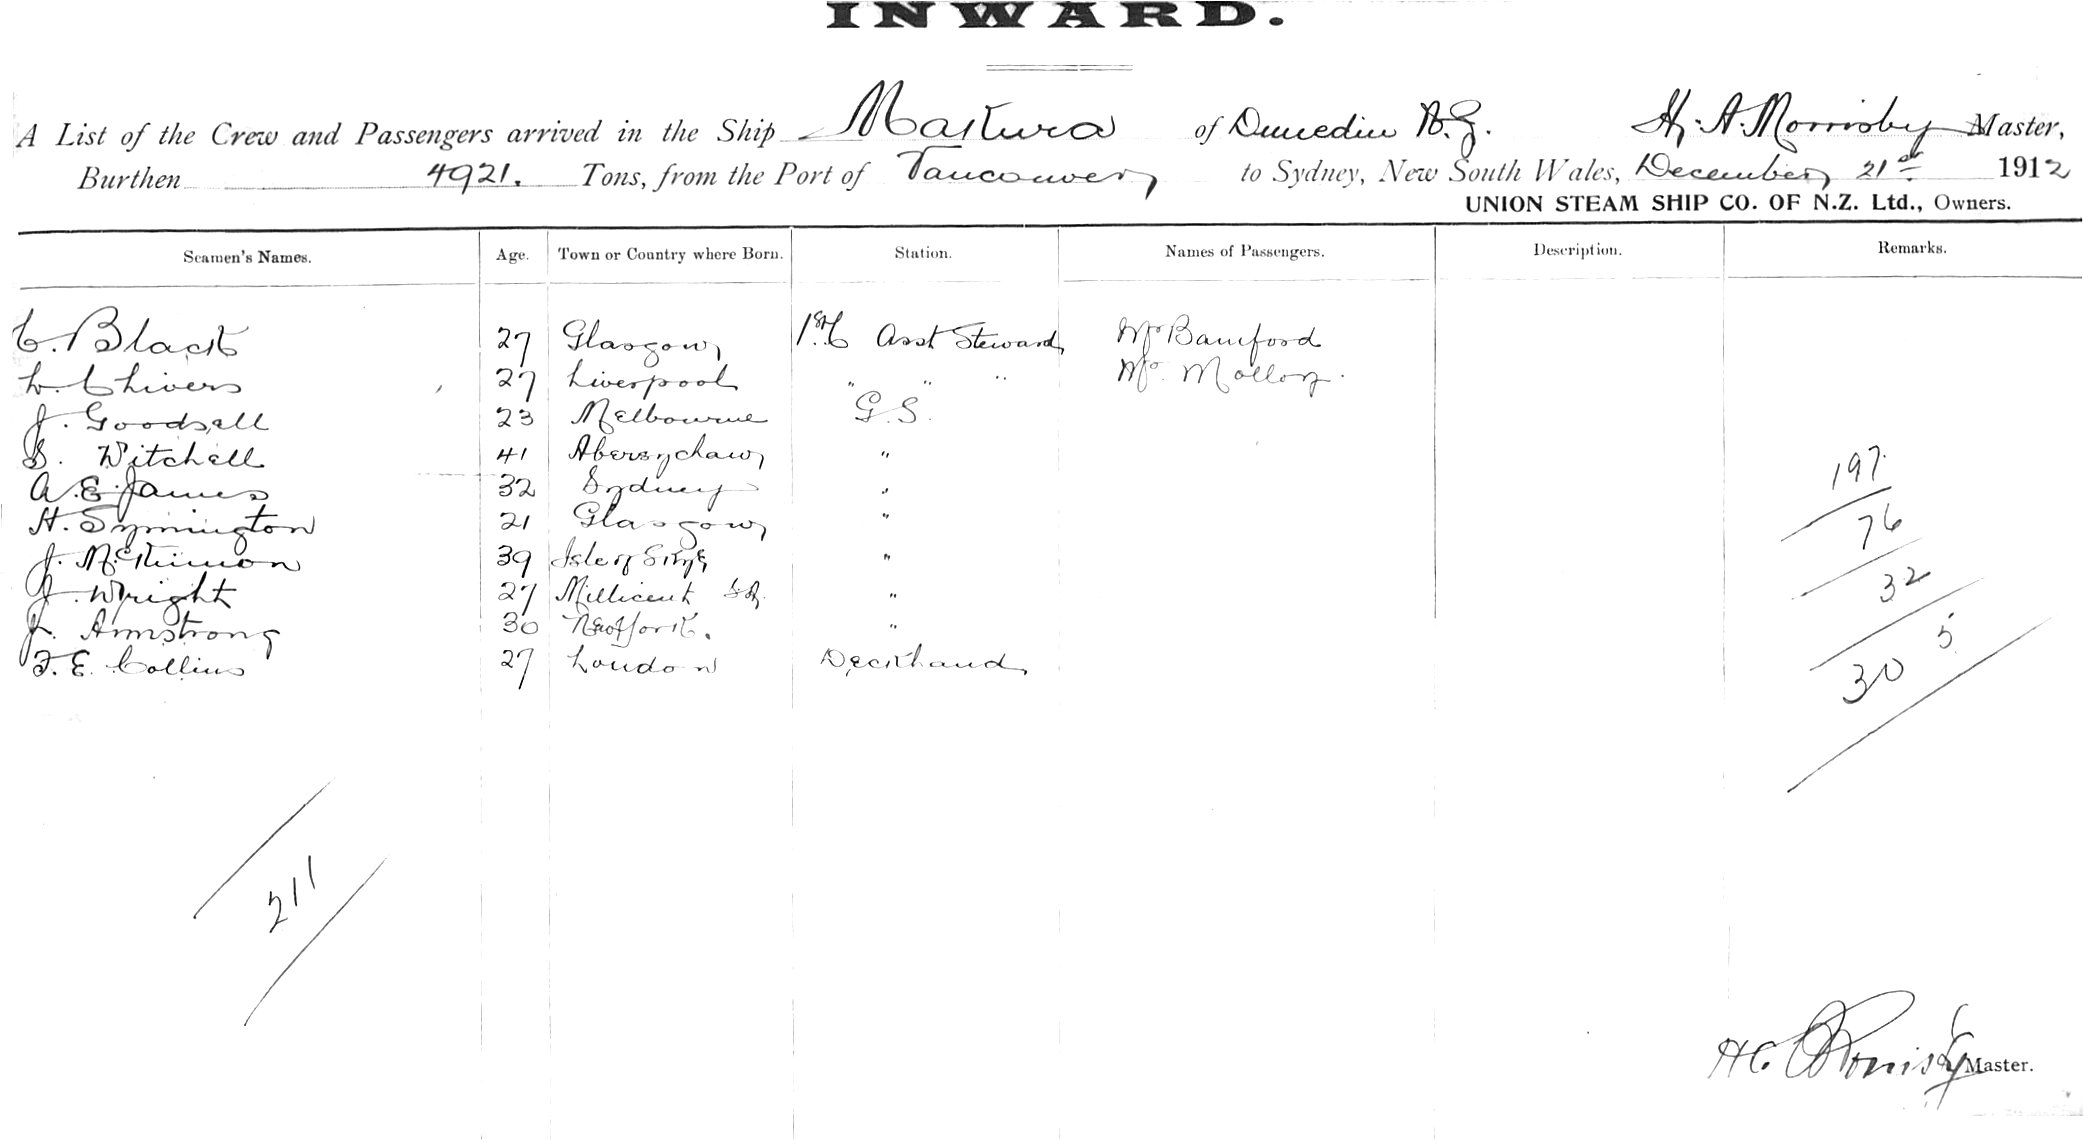 INWARD.
A List of the Crew and Passengers arrived in the Ship Makura of Dunedin N.Z. H. A. Morrisby Master,
Burthen 4921. Tons, from the Port of Vancouver to Sydney, New South Wales, December 21st 1912
UNION STEAM SHIP CO. OF N.Z. Ltd., Owners.
Seamen's Names. Age. Town or Country where Born. Station. Names of Passengers. Description. Remarks.
C. Black 27 Glasgow 1st C Asst Steward Mr Bamford
L. Chivers 27 Liverpool " " " Mr. Molloy.
J. Goodsell 23 Melbourne G.S.
S. Witchell 41 Abersychan "
A. E. James 32 Sydney "
H. Symington 21 Glasgow "
J. McKinnon 39 Isle of Skye "
J. Wright 27 Millicent S.A. "
J. Armstrong 30 New York. "
F. E. Collins 27 London Deckhand
197
76
32
5
30
211
Master.